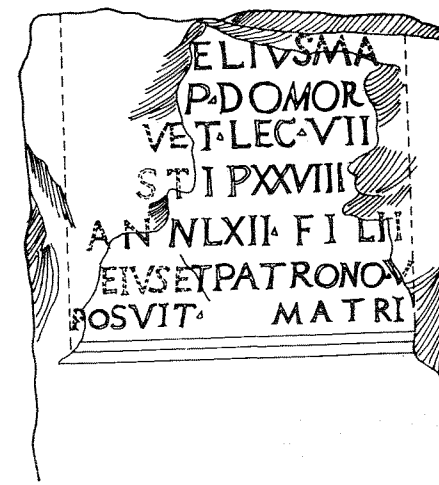 ELIVSMA
P·DOMOR
VET·LEC·VII
STIPXXVIII
ANNLXII·FILII
EIVSETPATRONO·V
POSVIT· MATRI